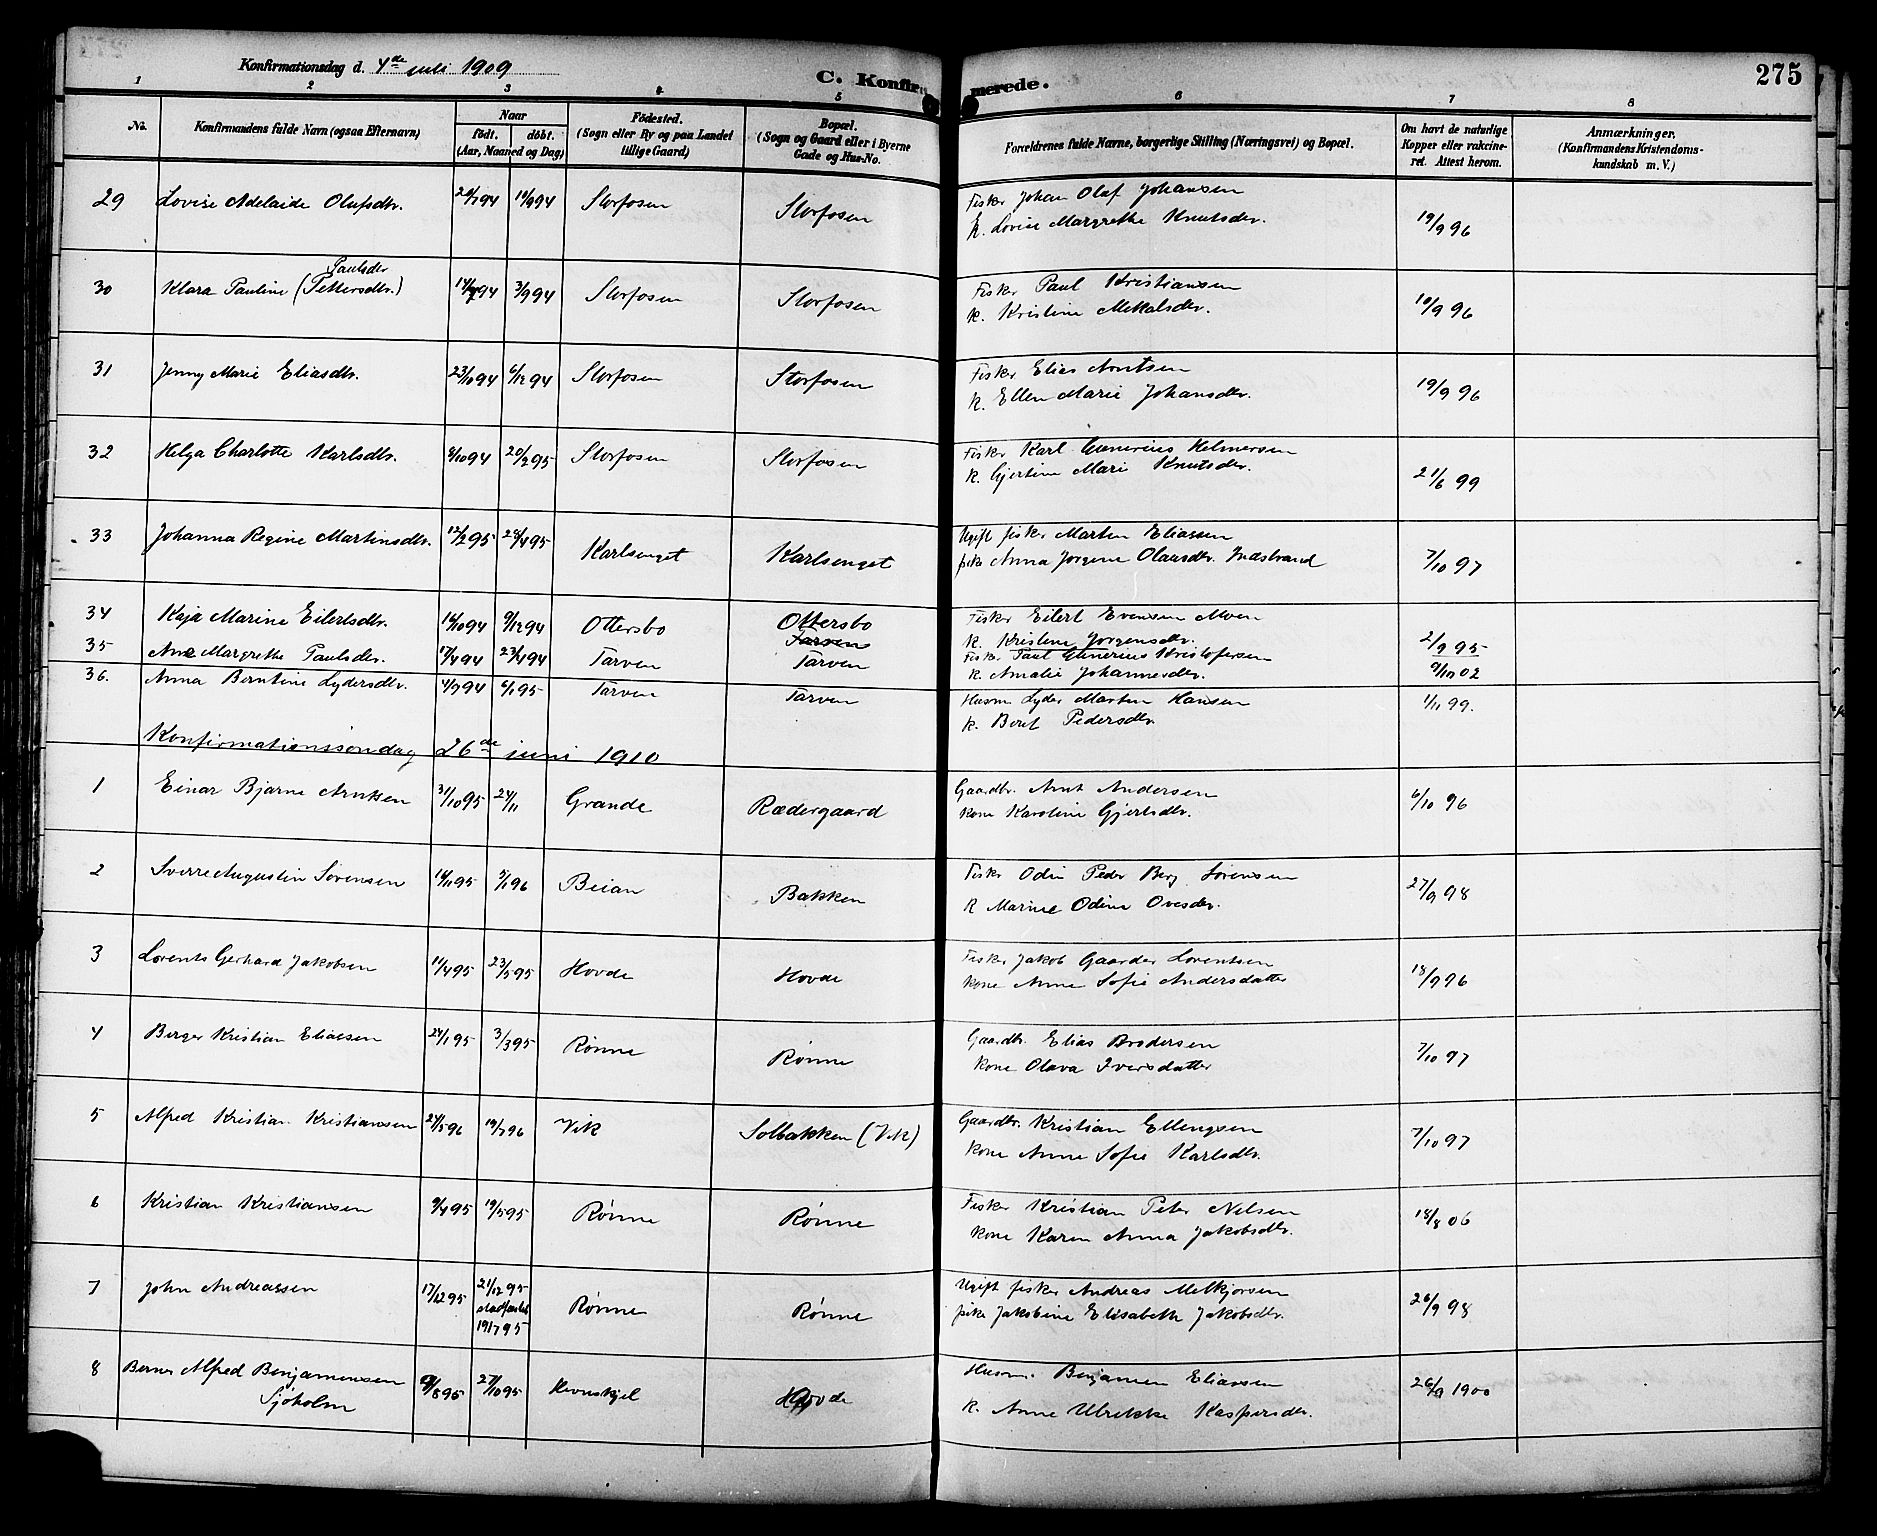 275
Konfirmationsdag d. 4de juli 1909
C. Konfir merede.
1 2 3 4 5 6 7 8
No. Konfirmandens fulde Navn (ogsaa Efternavn) Naar født. døbt. (Aar, Maaned og Dag) Fødested. (Sogn eller By og paa Landet tillige Gaard) Bopæl. (Sogn og Gaard eller i Byerne Gade og Hus-No. Forældrenes fulde Navne, borgerlige Stilling (Næringsvei) og Bopæl. Om havt de naturlige Kopper eller vakcineret. Attest herom. Anmærkninger. (Konfirmandens Kristendomskundskab m. V.)
29 Lovise Adelaide Olufsdtr. Storfosen Storfosen Fisker Johan Olaf Johansen
k. Lovise Margrethe Knutsdtr. 19/9 96
Paulsdtr
30 Klara Pauline (Pettersdtr.) 3/9 94 Storfosen Storfosen Fisker Paul Kristiansen
k. Kristine Mekalsdtr. 19/9 96
31 Jenny Marie Eliasdtr. 23/10 94 6/12 94 Storfosen Storfosen Fisker Elias Arntsen
k. Ellen Marie Johansdtr. 19/9 96
32 Helga Charlotte Karlsdtr. 8/10 94 20/2 95 Storfosen Storfosen Fisker Karl Gunerius Helmersen
k. Gjertine Marie Knutsdtr. 21/6 99
33 Johanna Regine Martinsdtr. 12/2 95 28/4 95 Karlsenget Karlsenget Ugift fisker Martin Eliassen
pike Anna Jørgine Olausdtr. Indstrand 7/10 97
34 Kaja Marine Eilertsdtr. 14/10 94 9/12 94 Ottersbo Ottersbo Fisker Eilert Evensen Moen
Tarven k. Kristine Jørgensdtr. 2/9 95
35 Ane Margrethe Paulsdtr. 17/4 94 23/4 94 Tarven Tarven Fisker Paul Gunerius Kristofersen
k. Amalie Johannesdtr. 9/10 02
36. Anna Berntine Lydersdtr. 4/7 94 6/1 95 Tarven Tarven Husm Lyder Martin Hansen
k. Beret Pedersdtr 1/11 99.
Konfirmationssøndag 26de juni 1910
1 Einar Bjarne Arntsen 31/10 95 24/11 Grande Rædergaard Gaardbr. Arnt Andersen
kone Karoline Gjertsdtr. 6/10 96
2 Sverre Augustin Sørensen 16/11 95 5/1 96 Beian Bakken Fisker Odin Peder Berg Sørensen
k Marine Odine Ovesdtr. 27/9 98
3 Lorents Gerhard Jakobsen 11/4 95 23/5 95 Hovde Hovde Fisker Jakob Gaarder Lorentsen
kone Anne Sofie Andersdatter 18/9 96
4 Berger Kristian Eliassen 24/1 95 3/3 95 Rønne Rønne Gaardbr. Elias Brodersen
kone Olava Iversdatter 7/10 97
5 Alfred Kristian Kristiansen 24/5 96 19/7 96 Vik Solbakken (Vik) Gaardbr. Kristian Ellengsen
kone Anne Sofie Karlsdtr. 7/10 97
6 Kristian Kristiansen 9/4 95 19/5 95 Rønne Rønne Fisker Kristian Peter Nelsen
kone Karen Anna Jakobsdtr. 18/8 06
7 John Andreassen 17/12 95 21/12 95 Rønne Rønne Ugift fisker Andreas Melkjorsen
pike Jakobine Elisabeth Jakobsdtr. 26/9 98
8 Berner Alfred Benjaminsen
Sjøholm 27/10 95 Hevnskjel Hovde Husm. Benjamen Eliassen
k. Anne Ulrikke Kaspersdtr. 26/9 1900